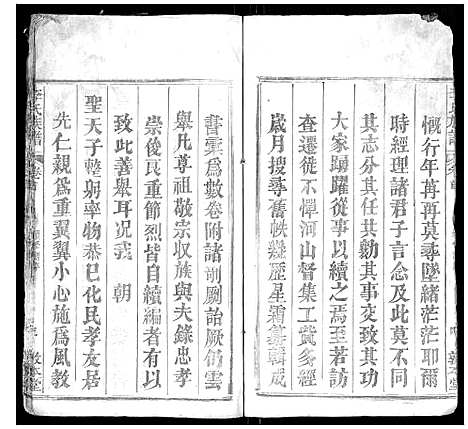 慨行年苒再莫尋墜緒茫茫耶爾
時經理諸君子言念及此莫不同
其志分其任共勷其事交致其功
大家踴躍從事以續之焉至若訪
查遷徙不憚河山督集工貲多經
歲月搜尋舊帙幾歷星霜纂輯成
書彙為數卷附諸剞劂詒厥仍雲
舉凡尊祖敬宗收族與夫錄忠孝
崇俊良重節烈皆自續編者有以
致此善舉耳况我 朝
聖天子整躬率物恭巳化民孝友居
先仁親為重翼翼小心施為風教
敦本堂